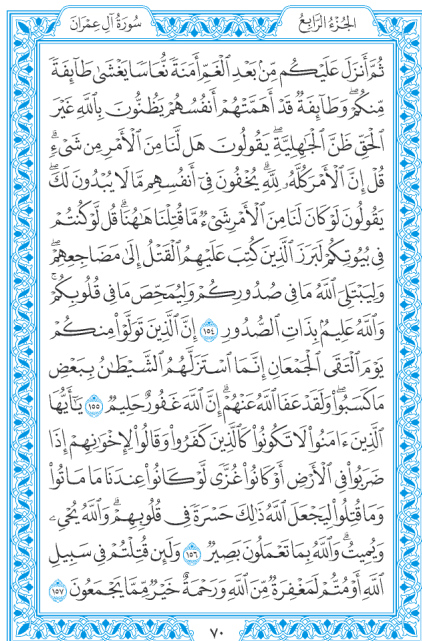 سُورَةُ آلِ عِمْرَانَ
الجُزْءُ الرَّابِعُ
ثُمَّ أَنزَلَ عَلَيْكُم مِّنۢ بَعْدِ ٱلْغَمِّ أَمَنَةً نُّعَاسًا يَغْشَىٰ طَآئِفَةً
مِّنكُمْ ۖ وَطَآئِفَةٌ قَدْ أَهَمَّتْهُمْ أَنفُسُهُمْ يَظُنُّونَ بِٱللَّهِ غَيْرَ
ٱلْحَقِّ ظَنَّ ٱلْجَٰهِلِيَّةِ ۖ يَقُولُونَ هَل لَّنَا مِنَ ٱلْأَمْرِ مِن شَىْءٍ ۗ
قُلْ إِنَّ ٱلْأَمْرَ كُلَّهُۥ لِلَّهِ ۗ يُخْفُونَ فِىٓ أَنفُسِهِم مَّا لَا يُبْدُونَ لَكَ ۖ
يَقُولُونَ لَوْ كَانَ لَنَا مِنَ ٱلْأَمْرِ شَىْءٌ مَّا قُتِلْنَا هَٰهُنَا ۗ قُل لَّوْ كُنتُمْ
فِى بُيُوتِكُمْ لَبَرَزَ ٱلَّذِينَ كُتِبَ عَلَيْهِمُ ٱلْقَتْلُ إِلَىٰ مَضَاجِعِهِمْ ۖ
وَلِيَبْتَلِىَ ٱللَّهُ مَا فِى صُدُورِكُمْ وَلِيُمَحِّصَ مَا فِى قُلُوبِكُمْ ۗ
وَٱللَّهُ عَلِيمٌۢ بِذَاتِ ٱلصُّدُورِ ١٥٤ إِنَّ ٱلَّذِينَ تَوَلَّوْا۟ مِنكُمْ
يَوْمَ ٱلْتَقَى ٱلْجَمْعَانِ إِنَّمَا ٱسْتَزَلَّهُمُ ٱلشَّيْطَٰنُ بِبَعْضِ
مَا كَسَبُوا۟ ۖ وَلَقَدْ عَفَا ٱللَّهُ عَنْهُمْ ۗ إِنَّ ٱللَّهَ غَفُورٌ حَلِيمٌ ١٥٥ يَٰٓأَيُّهَا
ٱلَّذِينَ ءَامَنُوا۟ لَا تَكُونُوا۟ كَٱلَّذِينَ كَفَرُوا۟ وَقَالُوا۟ لِإِخْوَٰنِهِمْ إِذَا
ضَرَبُوا۟ فِى ٱلْأَرْضِ أَوْ كَانُوا۟ غُزًّى لَّوْ كَانُوا۟ عِندَنَا مَا مَاتُوا۟
وَمَا قُتِلُوا۟ لِيَجْعَلَ ٱللَّهُ ذَٰلِكَ حَسْرَةً فِى قُلُوبِهِمْ ۗ وَٱللَّهُ يُحْىِۦ
وَيُمِيتُ ۗ وَٱللَّهُ بِمَا تَعْمَلُونَ بَصِيرٌ ١٥٦ وَلَئِن قُتِلْتُمْ فِى سَبِيلِ
ٱللَّهِ أَوْ مُتُّمْ لَمَغْفِرَةٌ مِّنَ ٱللَّهِ وَرَحْمَةٌ خَيْرٌ مِّمَّا يَجْمَعُونَ ١٥٧
٧٠